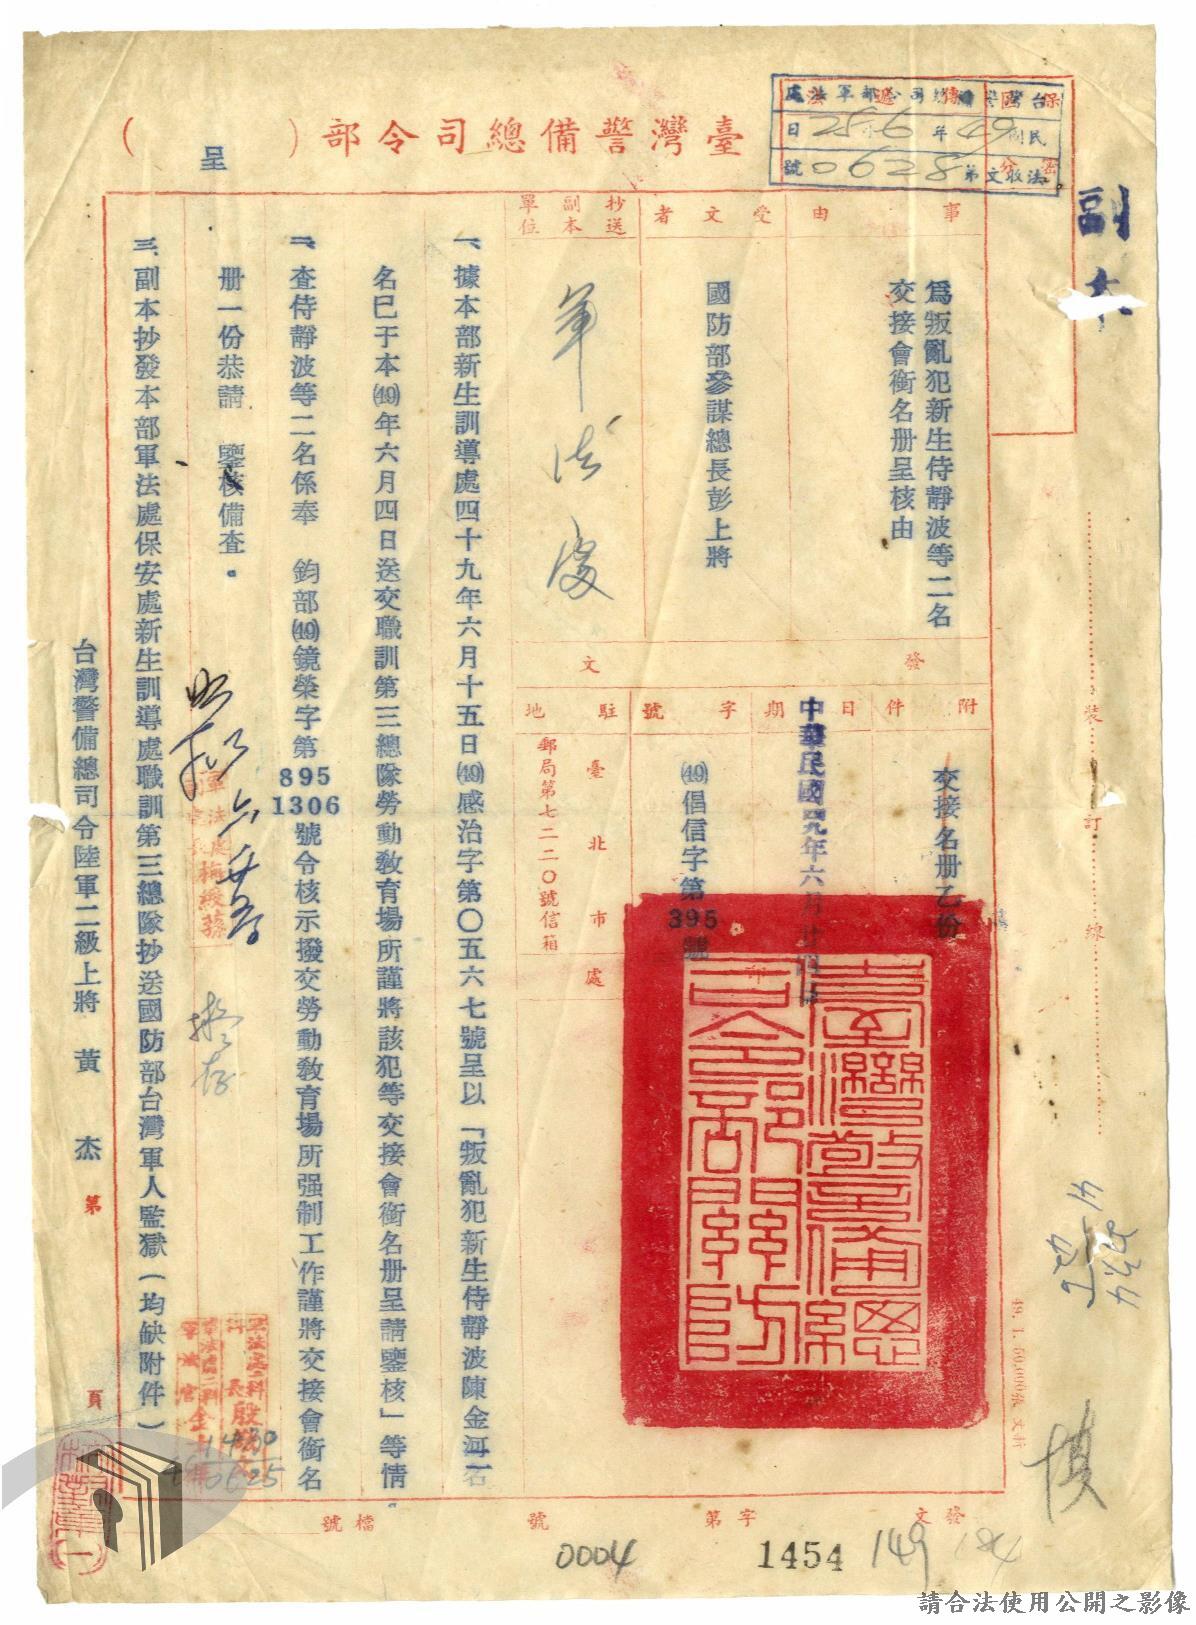 副本
臺灣警備總司令部（　）呈
民國49年6月25日
法收文第0628號
事由
為叛亂犯新生侍靜波等二名
交接會銜名册呈核由
受文者
國防部參謀總長彭上將
抄送副本單位
軍法處
發文
附件
交接名册乙份
日期
中華民國四九年六月廿四日
字號
⒆倡信字第395號
駐地
臺北市　處
郵局第七二二〇號信箱
一、據本部新生訓導處四十九年六月十五日⒆感治字第〇五六七號呈以「叛亂犯新生侍靜波陳金河二名
名已于本⒆年六月四日送交職訓第三總隊勞動教育場所謹將該犯等交接會銜名册呈請鑒核」等情。
二、查侍靜波等二名係奉　鈞部⒆鏡榮字第895 1306號令核示撥交勞動教育場所强制工作謹將交接會銜名
册一份恭請　鑒核備查。
三、副本抄發本部軍法處保安處新生訓導處職訓第三總隊抄送國防部台灣軍人監獄（均缺附件）
台灣警備總司令陸軍二級上將　黃　杰
第　頁
擬存
臺灣警備總司令部關防
裝
訂
線
49. 1. 50,000張
發文
字第
號
檔號
0004
1454
149
184
請合法使用公開之影像